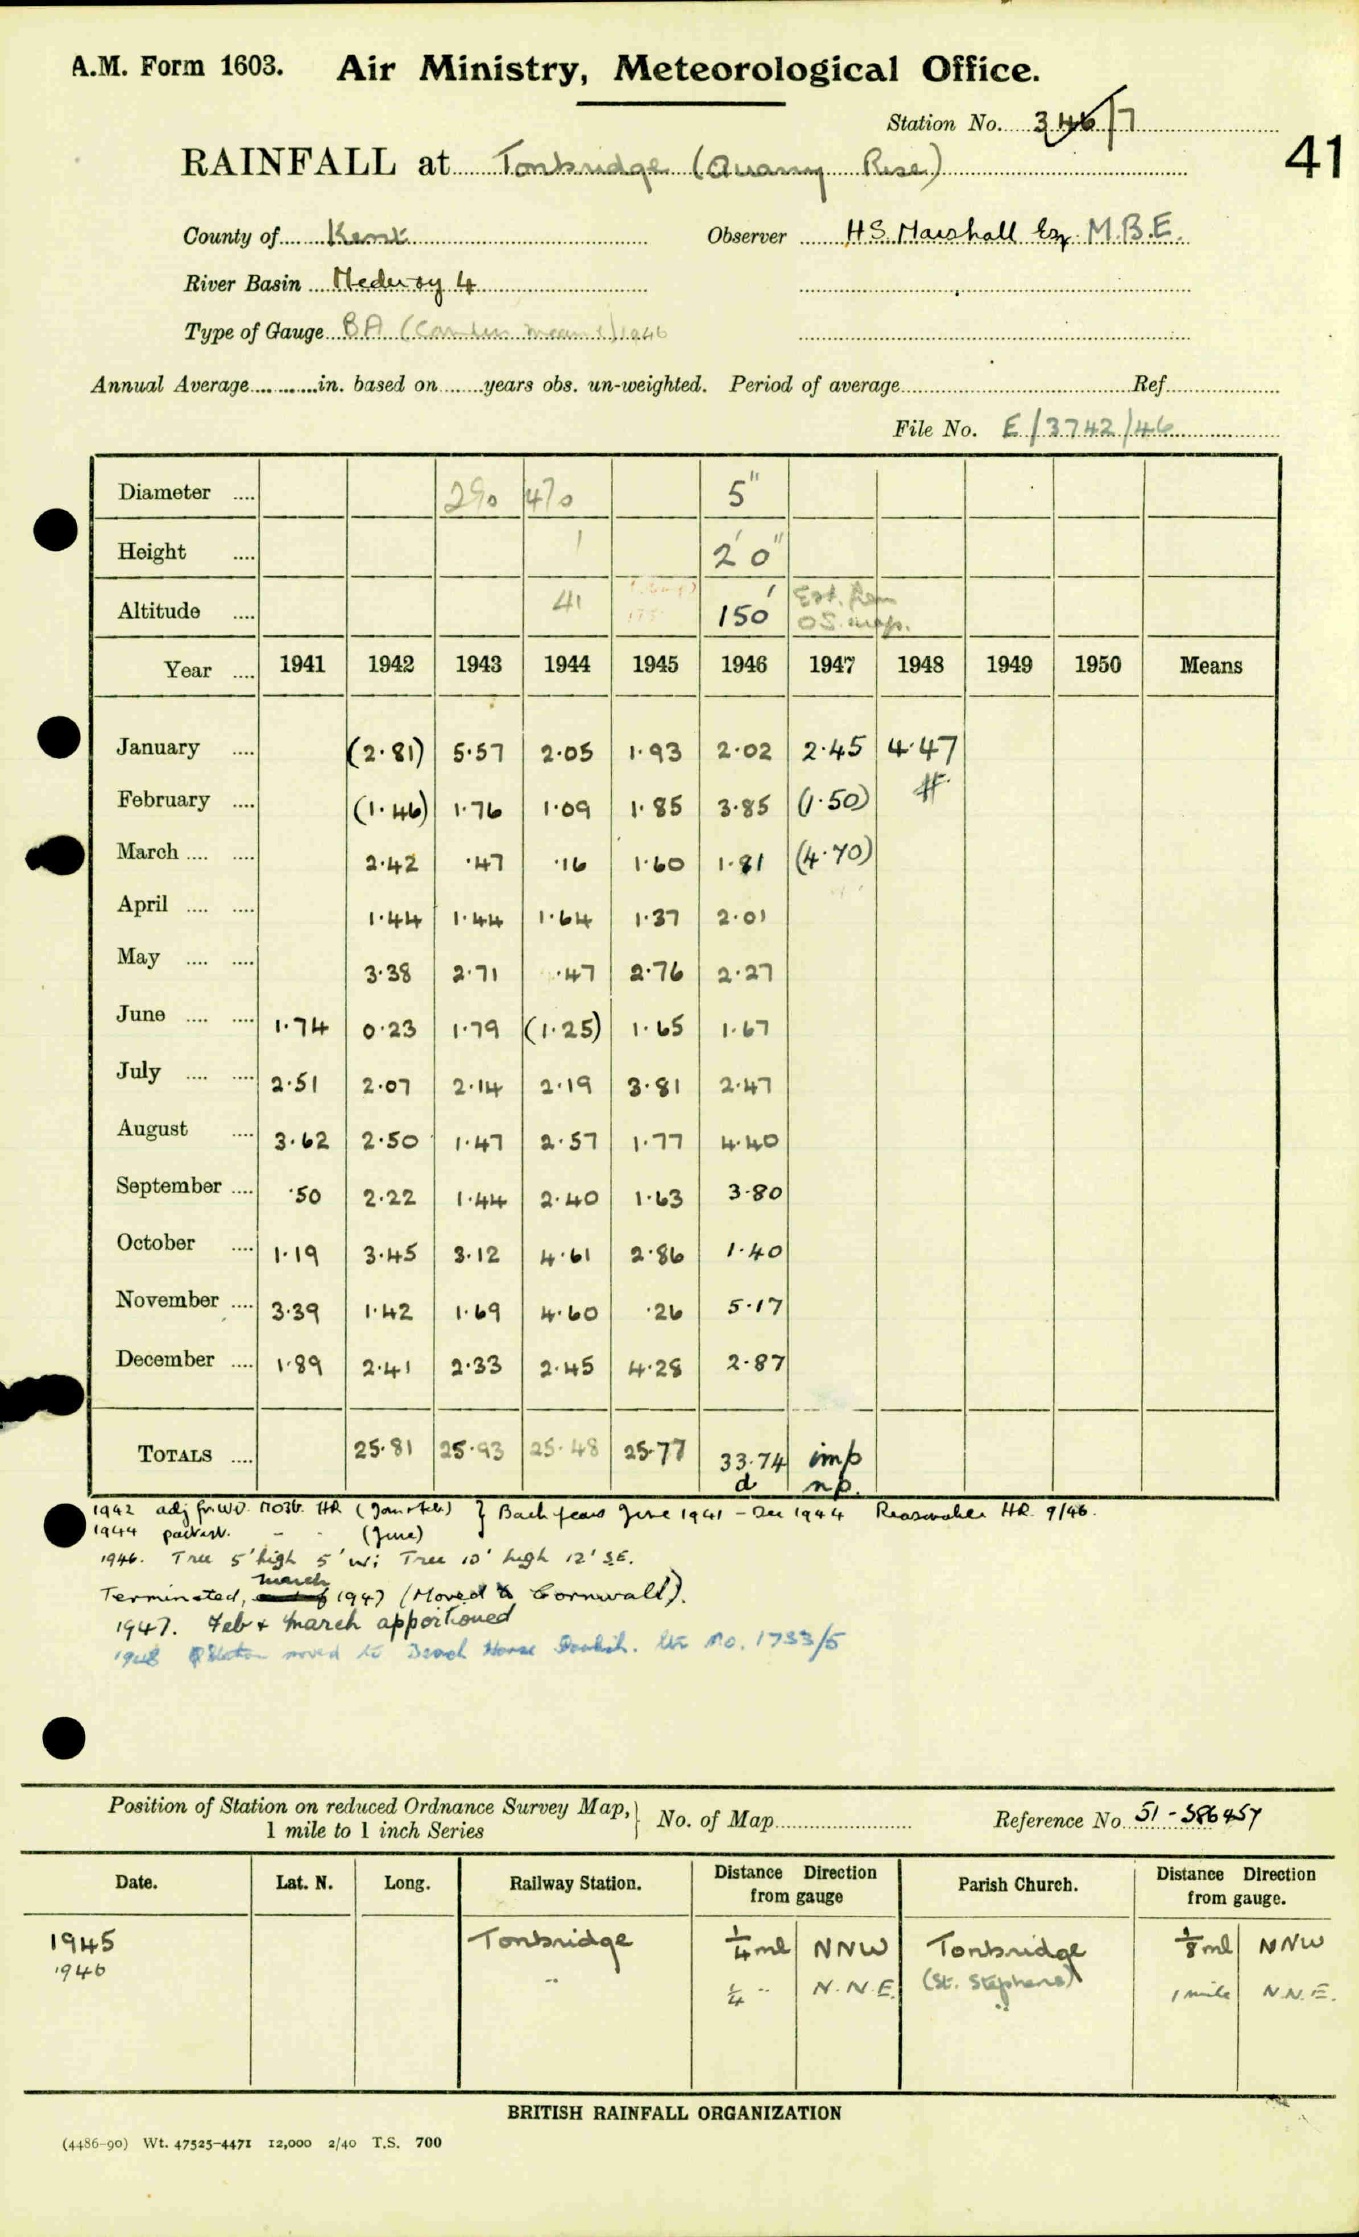 A.M. Form 1603. Air Ministry, Meteorological Office.
Station No. 346/7
41
RAINFALL at Tonbridge (Quarry Rise)
County of Kent Observer H S Marshall Esq M.B.E.
River Basin Medway 4
Type of Gauge BA 1946
Annual Average in. based on years obs. un-weighted. Period of average Ref
File No. E/3742/46
Diameter 290 470 5"
Height 1 2'0"
Altitude 41 150' Est. from
OS. map.
Year 1941 1942 1943 1944 1945 1946 1947 1948 1949 1950 Means
January (2.81) 5.57 2.05 1.93 2.02 2.45 4.47
February (1.46) 1.76 1.09 1.85 3.85 (1.50) #
March 2.42 .47 .16 1.60 1.81 (4.70)
April 1.44 1.44 1.64 1.37 2.01
May 3.38 2.71 .47 2.76 2.27
June 1.74 0.23 1.79 (1.25) 1.65 1.67
July 2.51 2.07 2.14 2.19 3.81 2.47
August 3.62 2.50 1.47 2.57 1.77 4.40
September .50 2.22 1.44 2.40 1.63 3.80
October 1.19 3.45 3.12 4.61 2.86 1.40
November 3.39 1.42 1.69 4.60 .26 5.17
December 1.89 2.41 2.33 2.45 4.28 2.87
TOTALS 25.81 25.93 25.48 25.77 33.74 imp
d n.p.
1942 adj fr. HR (Jan + Feb) } Back years June 1941 - Dec 1944 Reasonable HR. 9/46.
1944 - - (June)
1946. Tree 5' high 5' W; Tree 10' high 12' S.E.
Terminated, March 1947 (Moved to Cornwall).
1947. Feb + March apportioned
1948 Station moved to Beach House. No. 1733/5
Position of Station on reduced Ordnance Survey Map,} No. of Map Reference No. 51-586457
1 mile to 1 inch Series
Date. Lat. N. Long. Railway Station. Distance Direction from gauge Parish Church. Distance Direction from gauge.
1945 Tonbridge 1/4 ml NNW Tonbridge 1/8 ml NNW
1946 " 1/4 " N.N.E. (St. Stephens) 1 mile N.N.E.
"
BRITISH RAINFALL ORGANIZATION
(4486-90) Wt. 47525-4471 12,000 2/40 T.S. 700